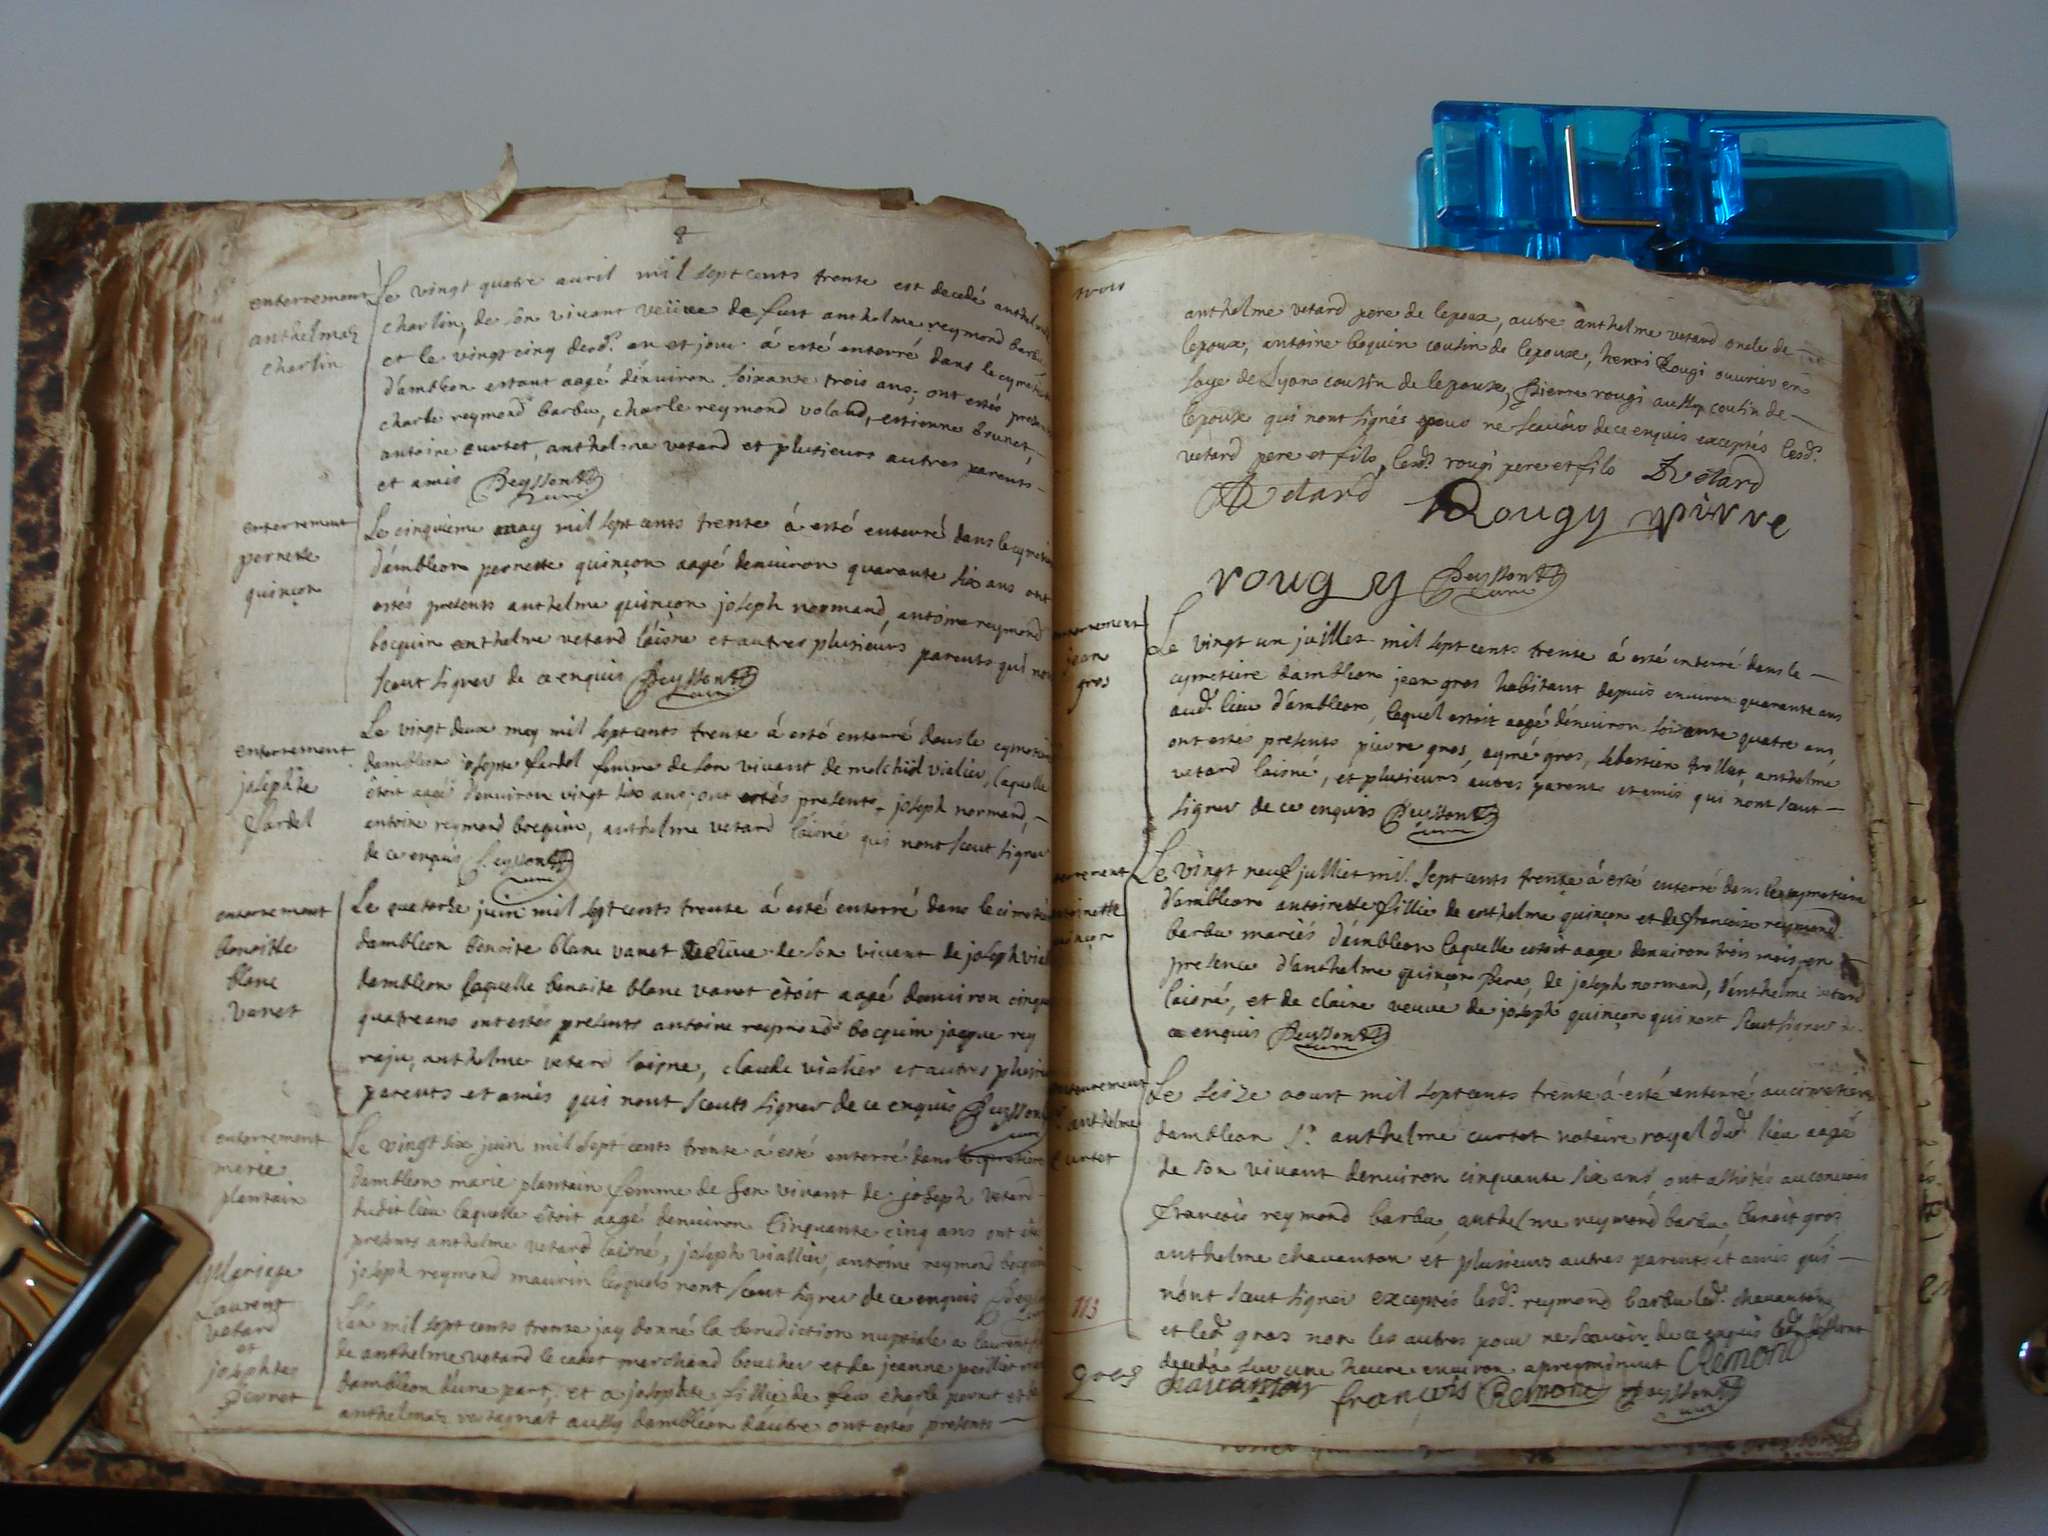 8
enterrement
anthelmaz
charlin
Le vingt quatre auril mil sept cents trente est decedé
charlin, de son viuant veüue de fust anthelme reymond barbu
et le vingt cinq desd. an et jour á esté enterré dans le
d'ambleon estant aagé dénuiron soixante trois ans; ont estés
charle reymond barbu, charle reymond voland, estienne brunet,
antoine curtet, anthelme vetard et plusieurs autres parents
et amis Peysson curé
enterrement
pernette
quinçon
Le cinquieme may mil sept cents trente á esté enterré dans le
d'ambleon pernette quinçon aagé denuiron quarante six ans ont
estés presents anthelme quinçon joseph normand, antoine reymond
bocquin anthelme vetard láisne et autres plusieurs parents qui
sceut signer de ce enquis Peysson curé
enterrement
josephte
fardel
Le vingt deux mey mil sept cents trente á esté enterré dans le
dambleon fardel femme de son viuant de melchiol vialier, laquelle
étoit aagé denuiron vingt six ans: ont estés presents joseph normand,
antoine reymond bocquin, anthelme vetard laisné qui nont sceut signer
de ce enquis Peysson curé
enterrement
benoitte
blanc
vanet
Le quatorse juin mil sept cents trente á esté enterré dans le
dambleon benoite blanc vanet veüue de son viuent de joseph
dambleon laquelle benoite blanc vanet êtoit aagé denuiron
quatre ans ont estés presents antoine reymond bocquin jacque rey
raju, anthelme vetard laisne, claude vialier et autres
parents et amis qui nont sceuts signer de ce enquis Peysson curé
enterrement
marie
plantain
Le vingt six juin mil sept cents trente á esté enterré dans le
dambleon marie plantain femme de son viuant de joseph vetard
dudit lieu laquelle étoit aagé denuiron cinquante cinq ans ont
presents anthelme vetard laisné, joseph viallier, antoine reymond
joseph reymond maurin lesquels nont sceut signer de ce enquis
Mariage
Laurent
vetard
et
josephtes
Pernet
Lan mil sept cents trente jay donné la benediction nuptiale a laurent
de anthelme vetard le cadet marchand boucher et de jeanne
dambleon dune part, et a josephte fillie de feu charle pernet et
anthelmaz aussy dambleon dautre ont estés presents
trois
anthelme vetard pere de lepoux, autre anthelme vetard oncle de
lepoux, antoine boquin cousin de lepoux, henri Rougi ouurier en
soye de Lyon cousin de lepoux, Pierre rougi aussy cousin de
lepoux qui nont signés pour ne scauoir de ce enquis exceptés lesd.
vetard pere et fils, lesd. rougi pere et fils Vetard
Vetard Rougy pierre
rougy Peysson curé
jean
gros
Le vingt un juillet mil sept cents trente á esté enterré dans le
cymetiere dambleon jean gros habitant depuis enuiron quarante ans
aud. lieu d'ambleon, lequel estoit aagé dénuiron soixante quatre ans
ont estés presents pierre gros, aymé gros, sebastien trollet, anthelme
vetard laisné, et plusieurs autres parents et amis qui nont sceut
signer de ce enquis Peysson curé
Le vingt neuf julliet mil sept cents trente á esté enterré dans le cymetiere
d'ambleon antoinette fillie de anthelme quinçon et de francoise reymond
barbu mariés dámbleon laquelle estoit aage denuiron trois mois, en
presence d'anthelme quinçon pere, de joseph normand, d'anthelme vetard
laisné, et de claire veuve de joseph quinçon qui nont sceut signer de
ce enquis Peysson curé
anthelme
Curtet
Le seize aoust mil sept cents trente á esté enterré au cimetiere
dambleon Sr. anthelme curtet notaire royal dud. lieu aagé
de son viuant denuiron cinquante six ans ont assistés au conuois
François reymond barbu, anthelme reymond barbu, benoit gros,
anthelme chauanton et plusieurs autres parents et amis qui
nónt sceut signer exceptés lesd. reymond barbu led. chauanton
et led. gros non les autres pour ne scauoir de ce enquis
decedé sur une heure enuiron apres minuit Remond
113
gros chauanton françois Remond Peysson curé